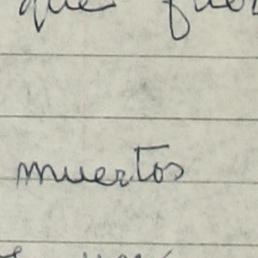 que fuer
muertos